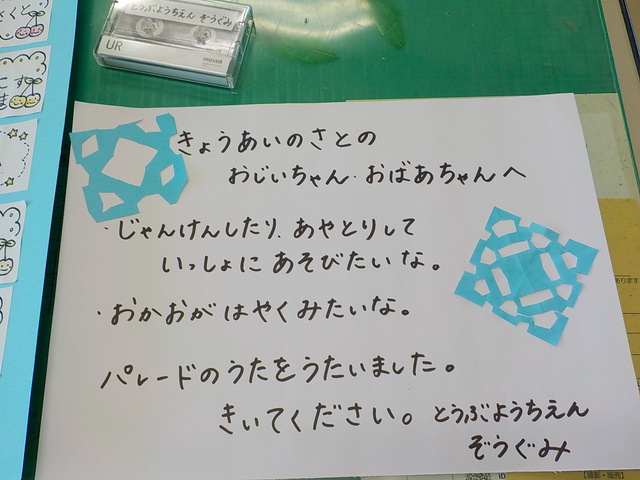 とうぶようちえん ぞうぐみ
UR
maxell
きょうあいのさとの
おじいちゃん・おばあちゃんへ
・じゃんけんしたり、あやとりして
いっしょに あそびたいな。
・おかおが はやくみたいな。
パレードのうたをうたいました。
きいてください。 とうぶようちえん
ぞうぐみ